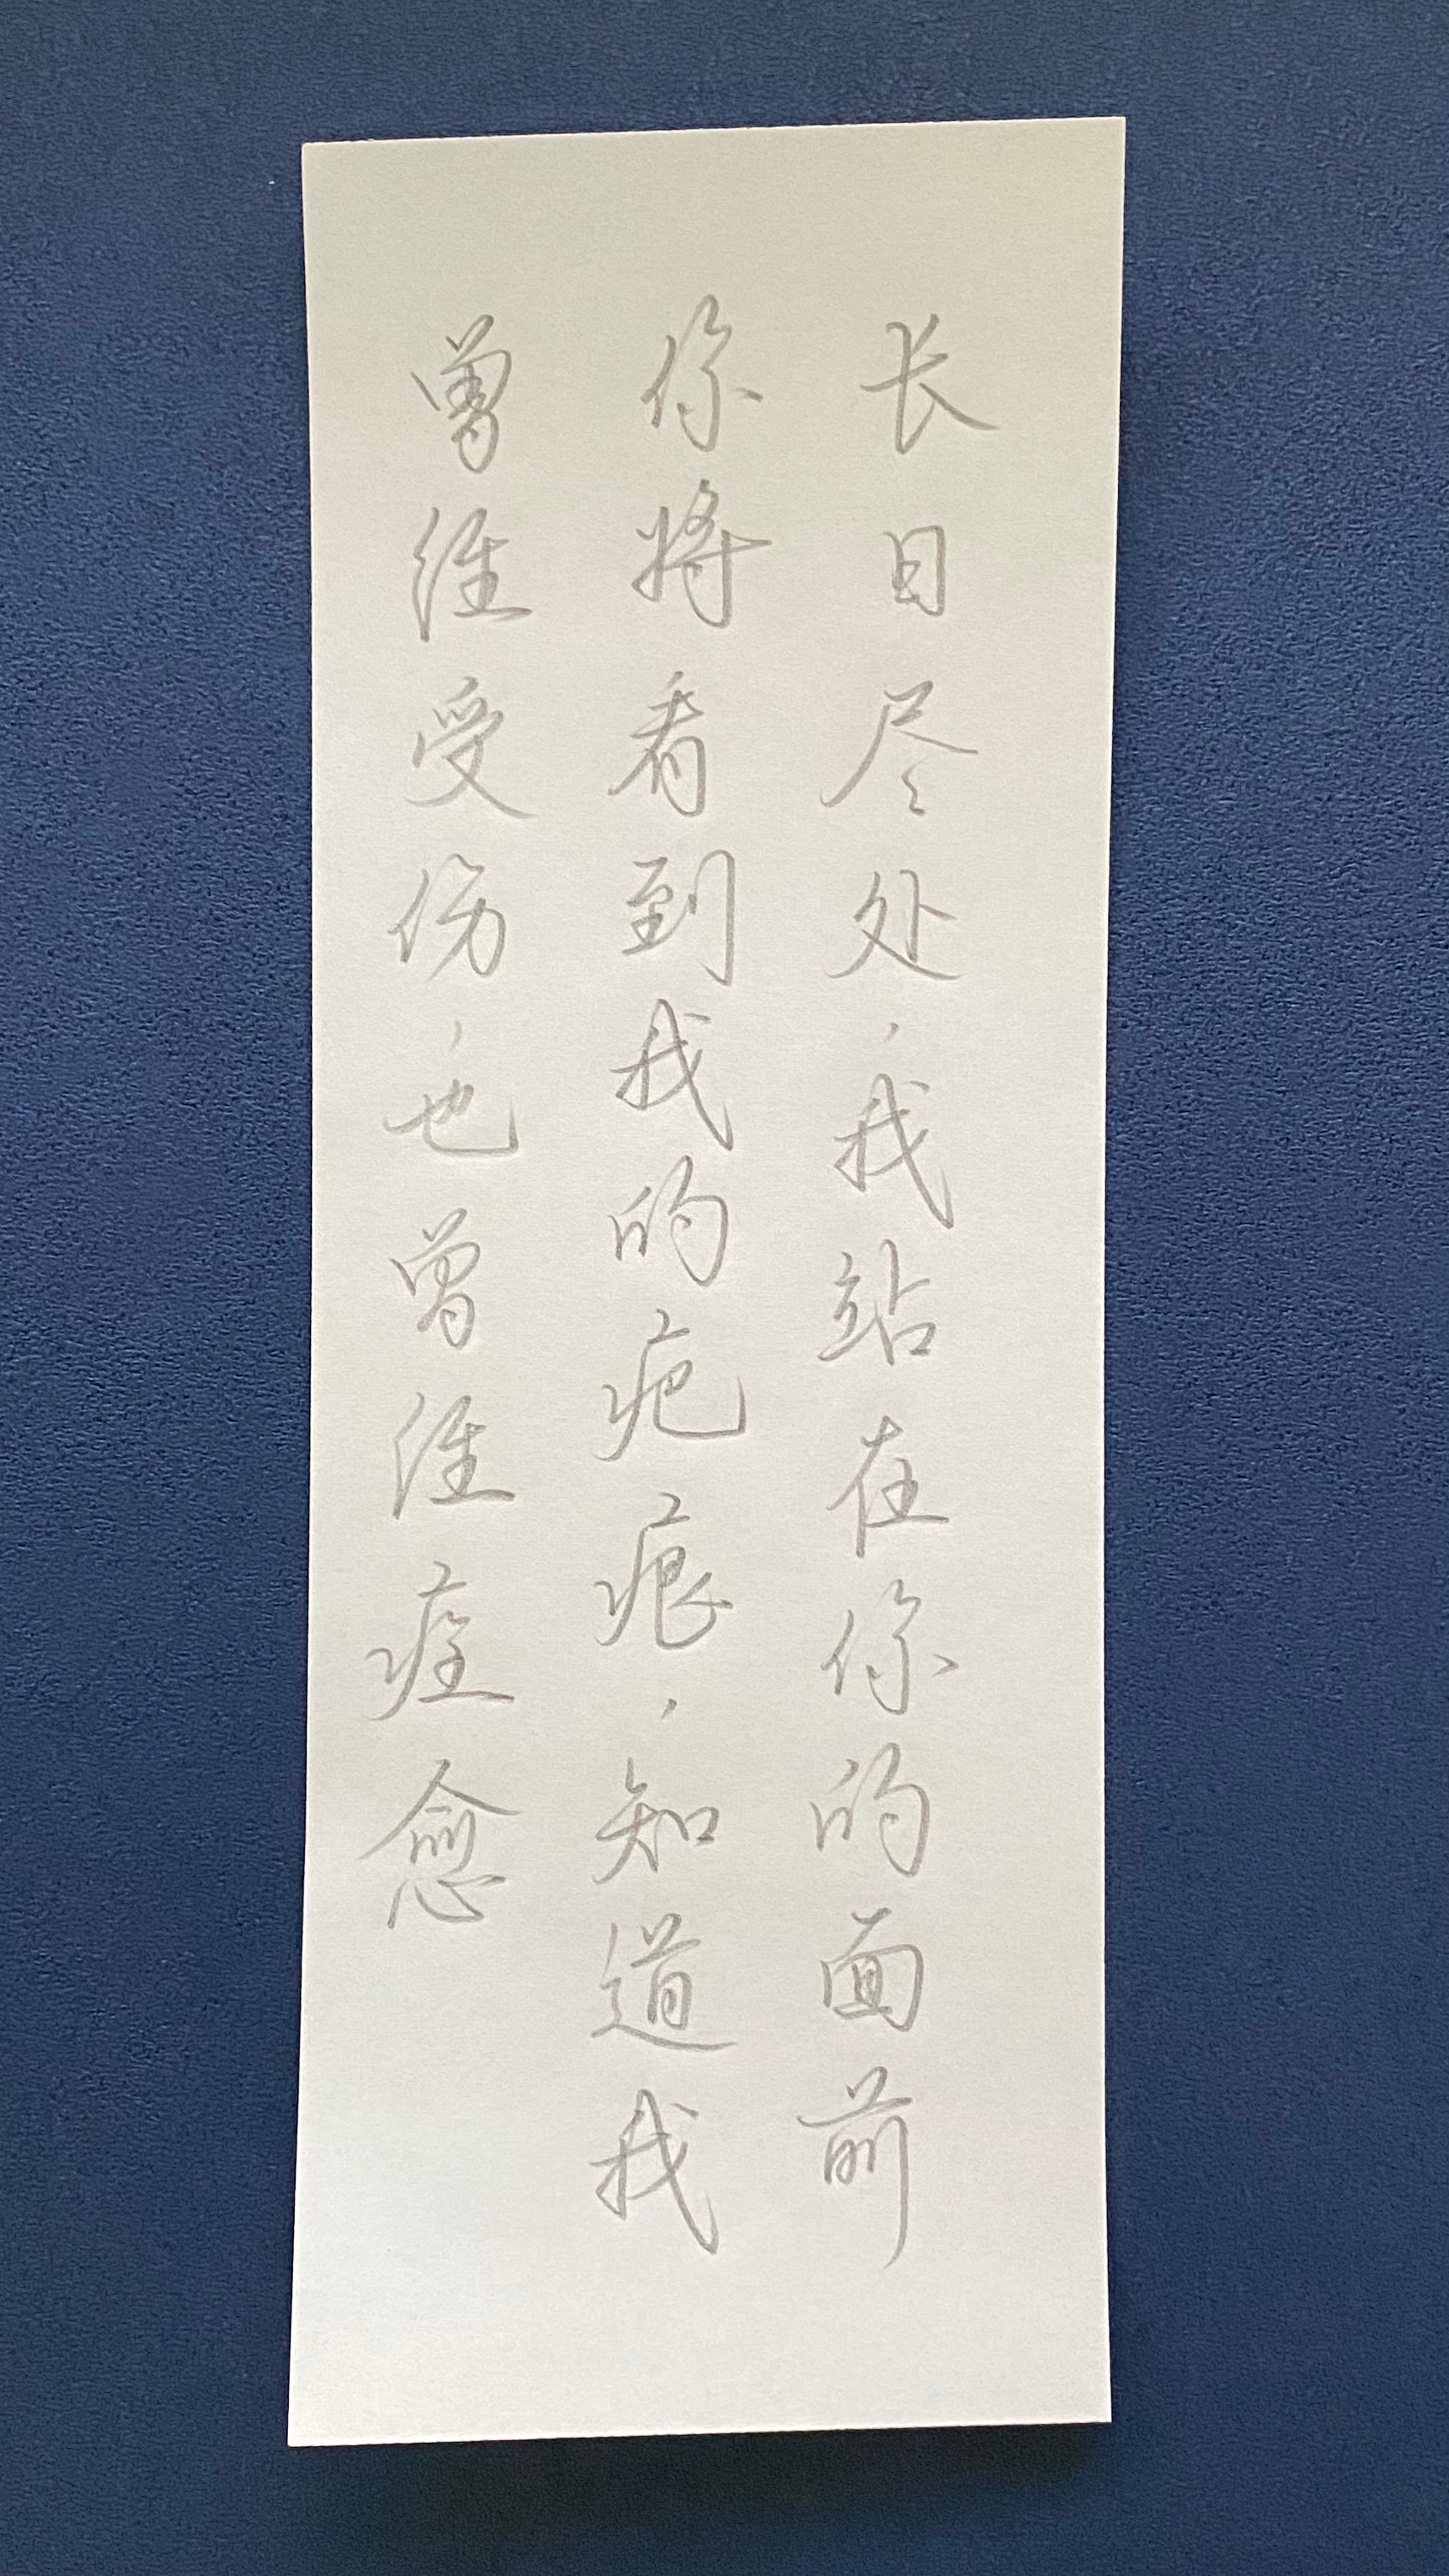 长日尽处，我站在你的面前
你将看到我的疤痕，知道我
曾经受伤，也曾经痊愈